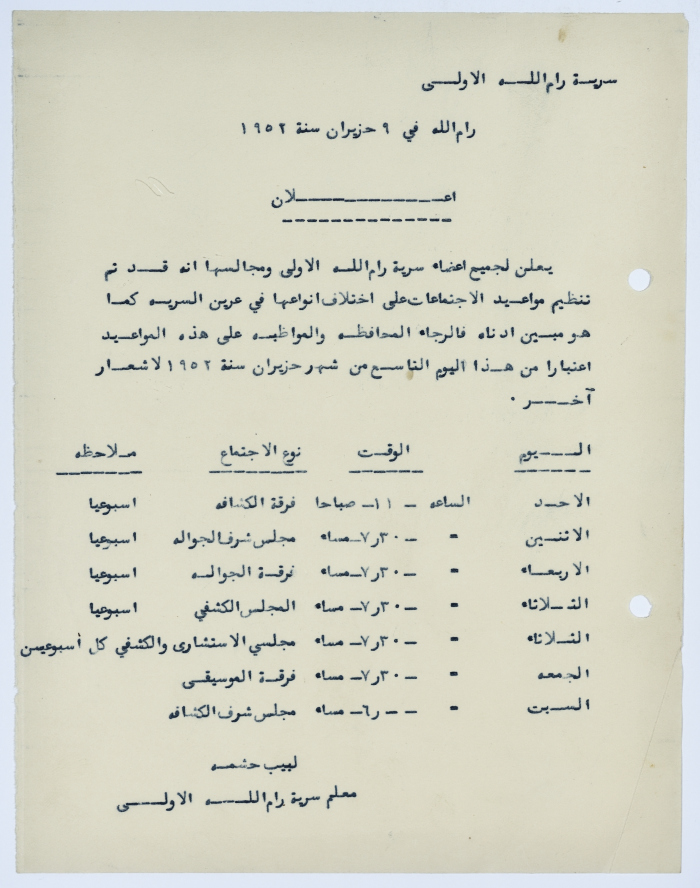 سرية رام الله الاولى
رام الله في ٩ حزيران سنة ١٩٥٢
اعـــــلان
يعلن لجميع اعضاء سرية رام الله الاولى ومجالسها انه قد تم
تنظيم مواعيد الاجتماعات على اختلاف انواعها في عرين السريه كما
هو مبين ادناه فالرجاء المحافظه والمواظبه على هذه المواعيد
اعتبارا من هذا اليوم التاسع من شهر حزيران سنة ١٩٥٢ لاشعار
آخر ٠
اليوم الوقت نوع الاجتماع ملاحظه
الاحد الساعه - ١١ - صباحا فرقة الكشافه اسبوعيا
الاثنين " - ٣٠ر٧ - مساء مجلس شرف الجواله اسبوعيا
الاربعاء " - ٣٠ر٧ - مساء فرقة الجواله اسبوعيا
الثلاثاء " - ٣٠ر٧ - مساء المجلس الكشفي اسبوعيا
الثلاثاء " - ٣٠ر٧ - مساء مجلسي الاستشارى والكشفي كل أسبوعين
الجمعه " - ٣٠ر٧ - مساء فرقة الموسيقى
السبت " - - ر٦ - مساء مجلس شرف الكشافه
لبيب حشمه
معلم سرية رام الله الاولى